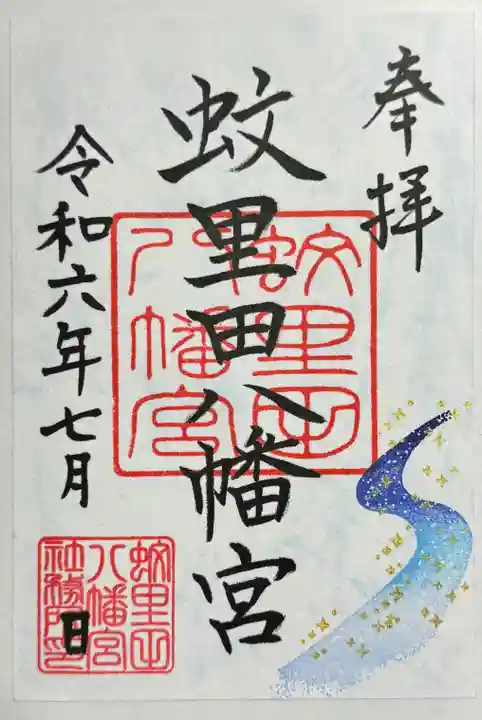 奉拝
蚊里田八幡宮
令和六年七月
日
蚊里田
八幡宮
蚊里田
八幡宮
社務所印